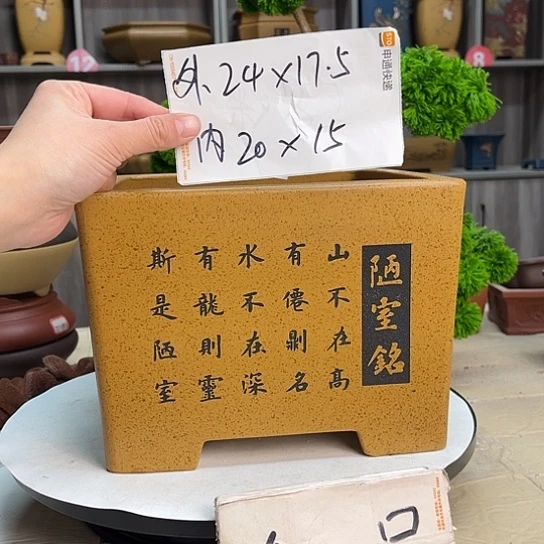 外24×17.5
内20×15
申通快递
12
8
陋室銘
山不在高
有僊剘名
水不在深
有龍則靈
斯是陋室
口